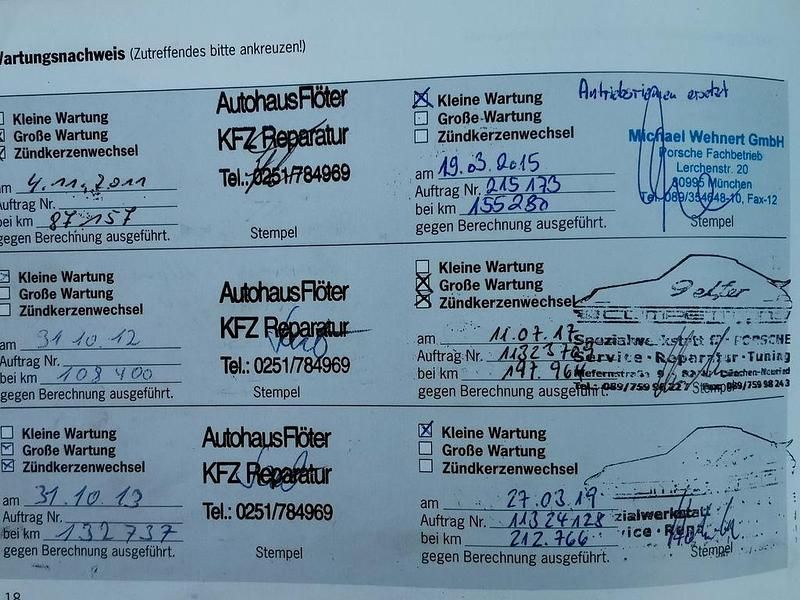 Wartungsnachweis (Zutreffendes bitte ankreuzen!)
Kleine Wartung
Große Wartung
Zündkerzenwechsel
am 4.11.2011
Auftrag Nr.
bei km 87157
gegen Berechnung ausgeführt.
Autohaus Flöter
KFZ Reparatur
Tel.: 0251/784969
Stempel
Kleine Wartung
Große Wartung
Zündkerzenwechsel
am 19.03.2015
Auftrag Nr. 215173
bei km 155280
gegen Berechnung ausgeführt.
Antriebsriemen ersetzt
Michael Wehnert GmbH
Porsche Fachbetrieb
Lerchenstr. 20
80995 München
Tel. 089/354648-10, Fax-12
Stempel
Kleine Wartung
Große Wartung
Zündkerzenwechsel
am 31.10.12
Auftrag Nr.
bei km 108400
gegen Berechnung ausgeführt.
Autohaus Flöter
KFZ Reparatur
Tel.: 0251/784969
Stempel
Kleine Wartung
Große Wartung
Zündkerzenwechsel
am 11.07.17
Auftrag Nr.
bei km
gegen Berechnung ausgeführt.
Spezialwerkstatt für PORSCHE
Service - Reparatur - Tuning
Stempel
Kleine Wartung
Große Wartung
Zündkerzenwechsel
am 31.10.13
Auftrag Nr.
bei km 132737
gegen Berechnung ausgeführt.
Autohaus Flöter
KFZ Reparatur
Tel.: 0251/784969
Stempel
Kleine Wartung
Große Wartung
Zündkerzenwechsel
am 27.03.19
Auftrag Nr. 11324128
bei km 212.766
gegen Berechnung ausgeführt.
zialwerkstatt
vice - Repa
Stempel
18